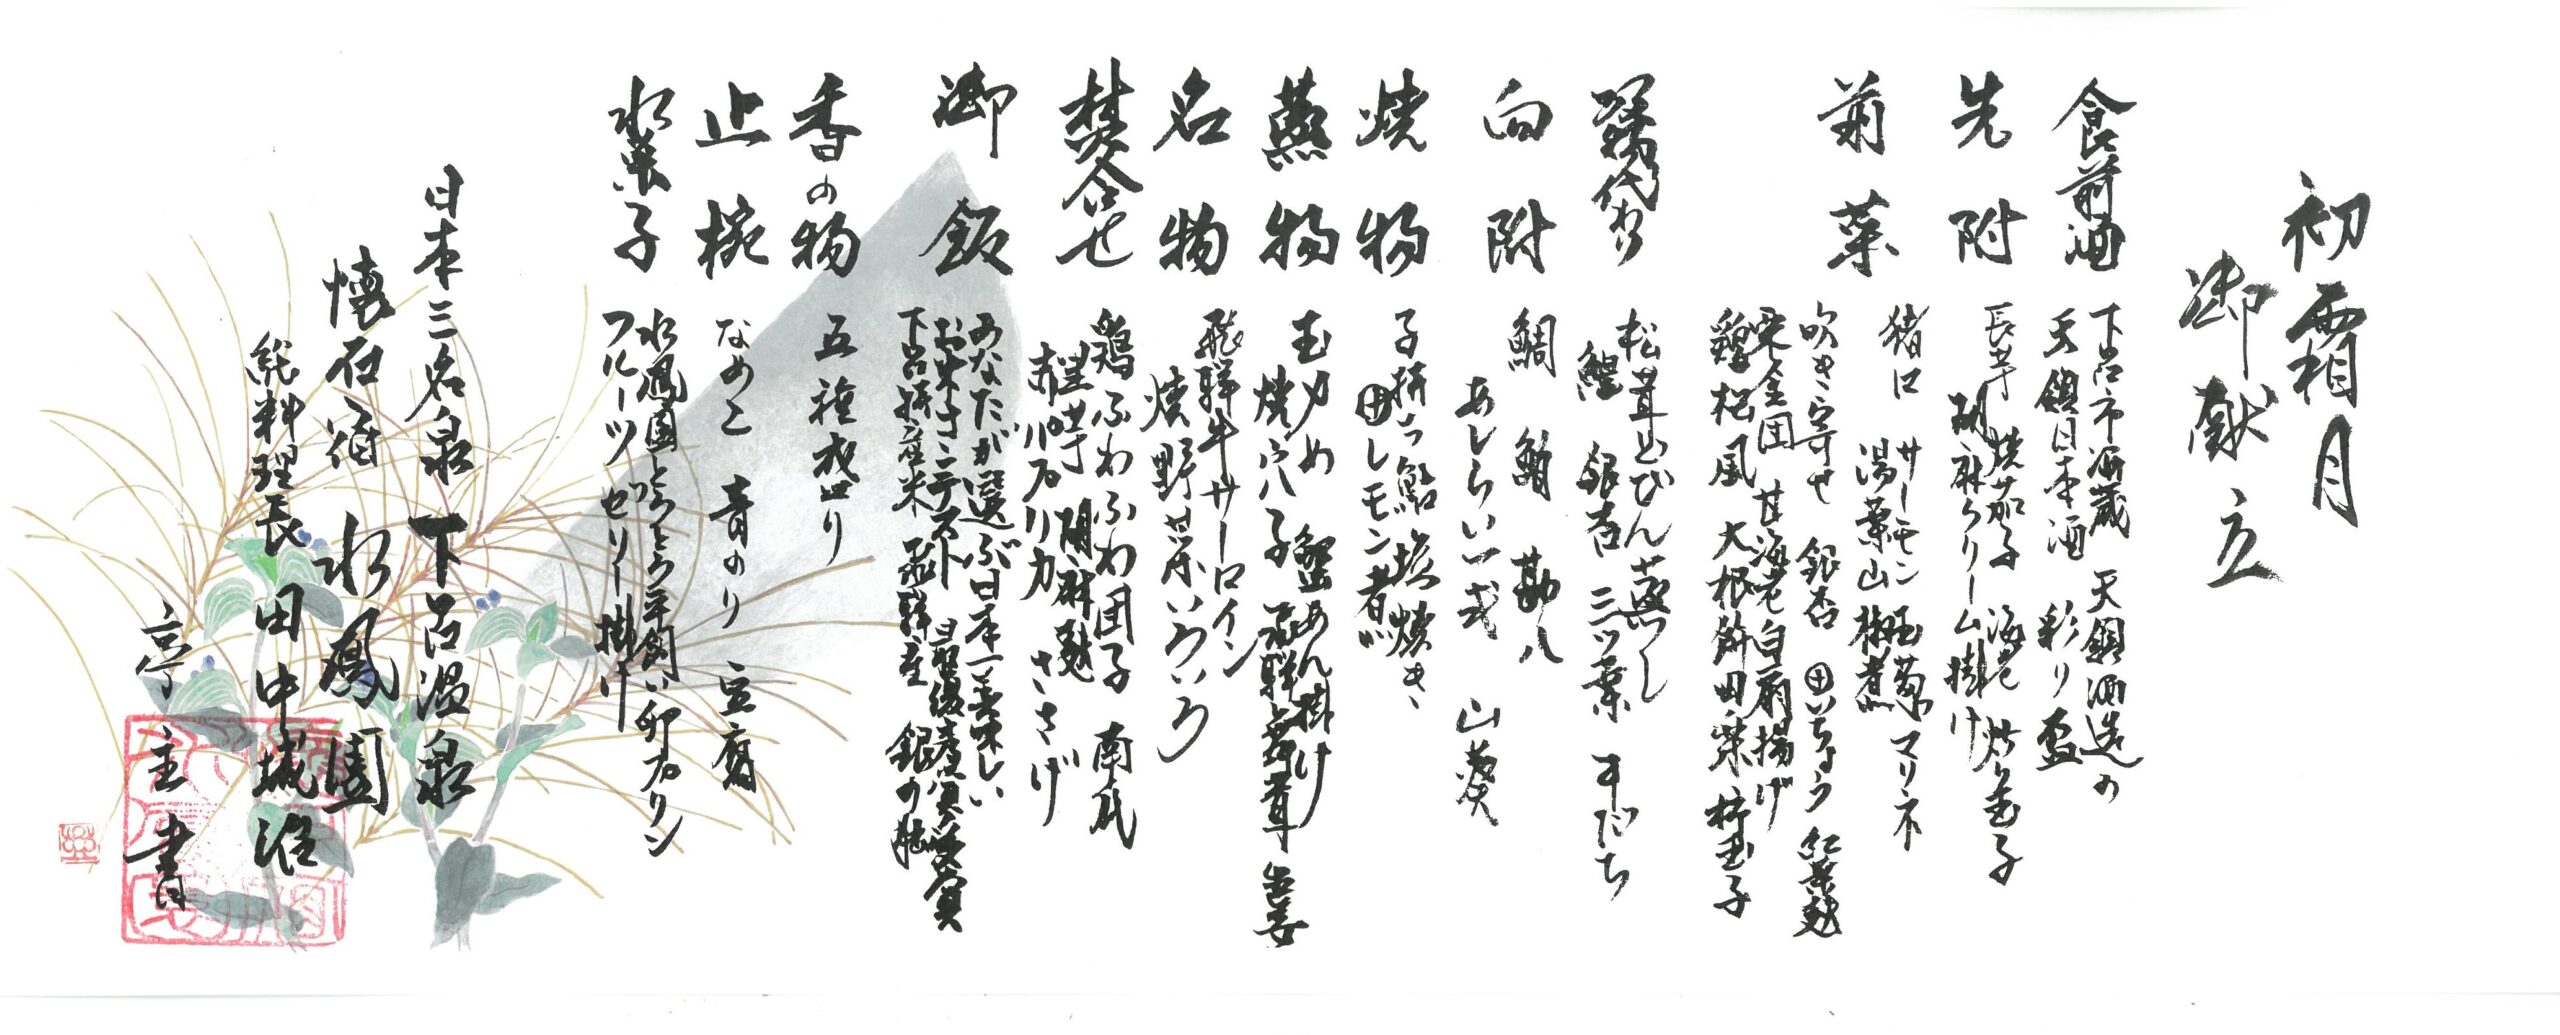 初霜月
御献立
食前酒
下呂市酒蔵 天領酒造の
天領日本酒 彩り盃
先附
長芋 焼茄子 海老 炒り玉子
胡麻クリーム掛け
前菜
猪口 サーモン 菊 マリネ
湯葉山椒煮
吹き寄せ 銀杏 田いちょう 紅葉麩
栗金団 甘海老白扇揚げ
鶏松風 大根餅田楽 柿玉子
御椀代わり
松茸どびん蒸し
鱧 銀杏 三ツ葉 すだち
向附
鯛 鮪 勘八
あしらい一式 山葵
焼物
子持ち鮎 塩焼き
田レモン煮
蒸物
玉〆め 蟹あん掛け
焼ふ八子 飛騨舞茸 生姜
名物
飛騨牛サーロイン
焼野菜いろいろ
焚合せ
鶏ふわふわ団子 南瓜
里芋 胡麻麩
赤パプリカ ささげ
御飯
あなたが選ぶ日本一美味しい
お米コンテスト 最優秀賞受賞
下呂特産米 飛騨産 銀の朏
香の物
五種盛り
止椀
なめこ 青のり 豆腐
水菓子
水鳳園とろとろ平飼い卵プリン
フルーツ ゼリー掛け
日本三名泉 下呂温泉
懐石宿 水鳳園
総料理長 田中城治
亭主書